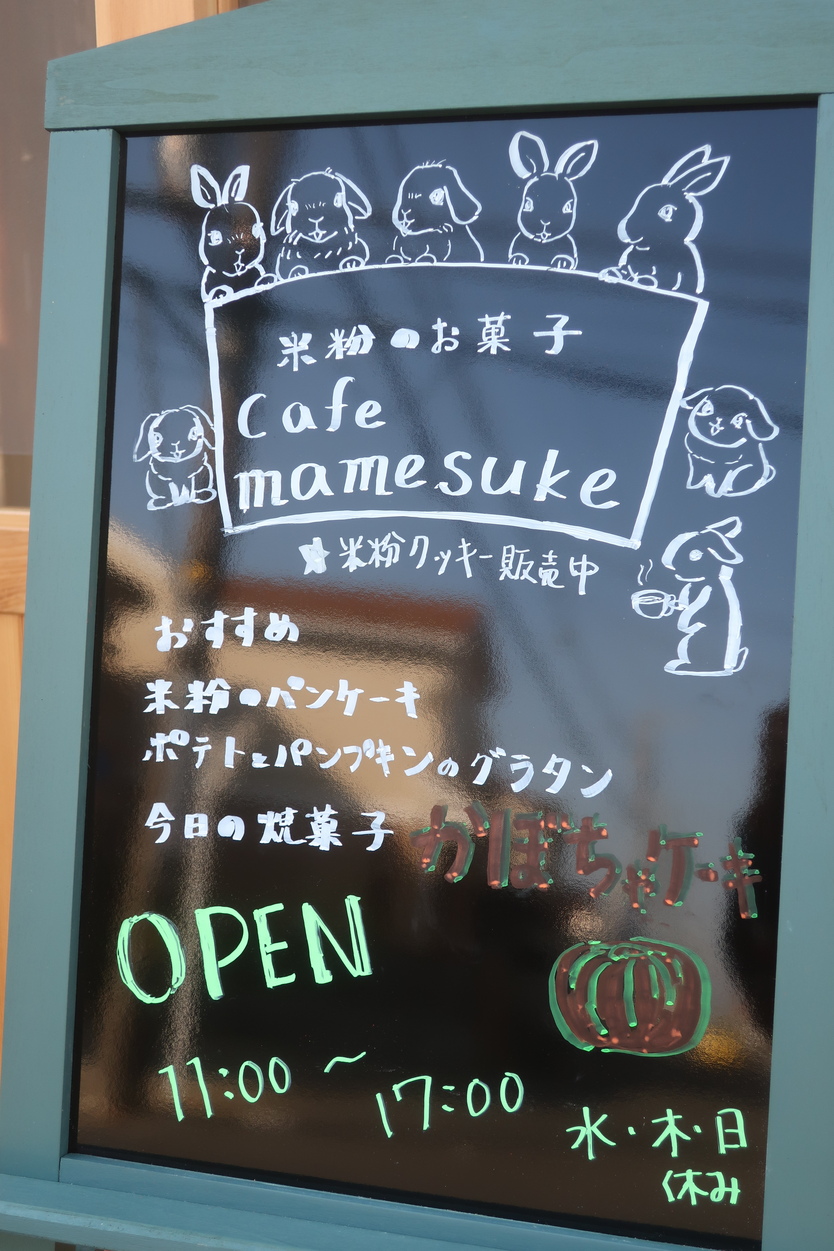 米粉のお菓子
cafe
mamesuke
★米粉クッキー販売中
おすすめ
米粉のパンケーキ
ポテトとパンプキンのグラタン
今日の焼菓子 かぼちゃケーキ
OPEN
11:00～17:00
水・木・日
休み